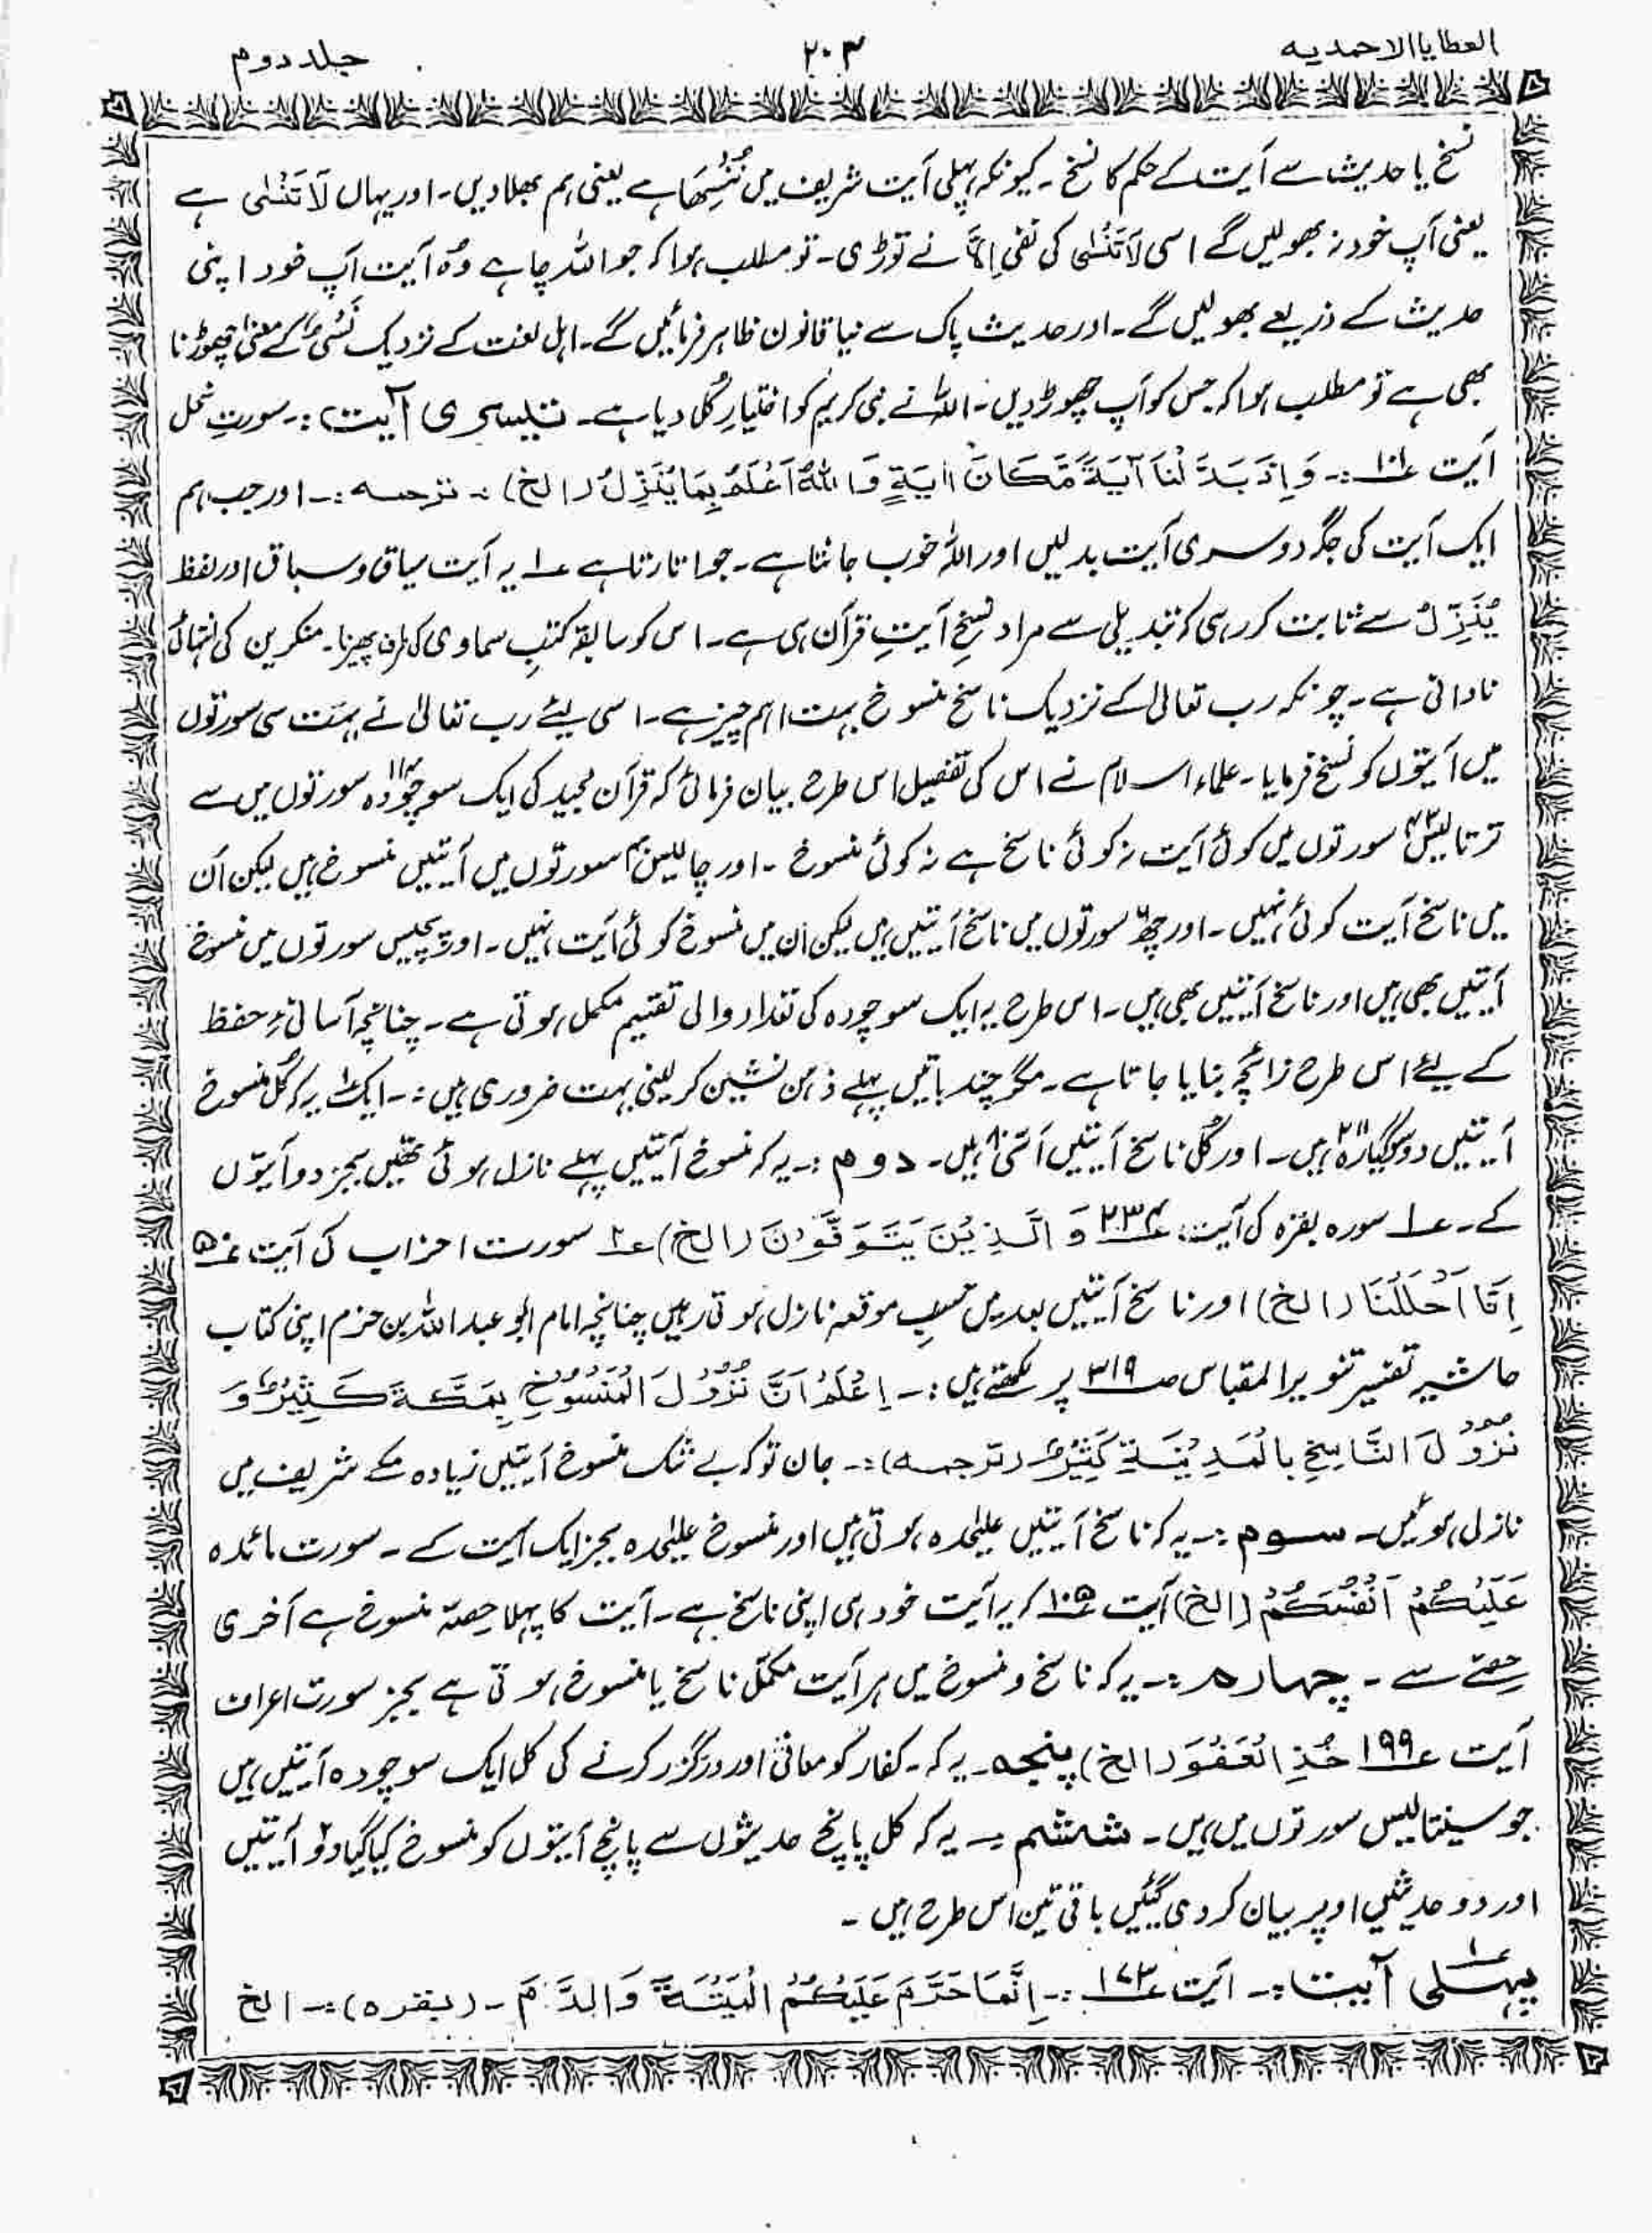 العطایا الاحمدیہ ۲۰۳ جلد دوم
نسخ یا حدیث سے آیت کے حکم کا نسخ۔ کیونکہ پہلی آیت شریف میں نُنْسِھَا ہے یعنی ہم بھلا دیں۔ اور یہاں لَا تَنْسٰی ہے
یعنی آپ خود نہ بھولیں گے اسی لَا تَنْسٰی کی نفی اِلَّا نے توڑی۔ تو مطلب ہوا کہ جو اللہ چاہے وُہ آیت آپ خود اپنی
حدیث کے ذریعے بھولیں گے۔ اور حدیث پاک سے نیا قانون ظاہر فرمائیں گے۔ اہل لغت کے نزدیک نَسْیٌ کے معنٰی چھوڑنا
بھی ہے تو مطلب ہوا کہ جس کو آپ چھوڑ دیں۔ اللہ نے نبی کریم کو اختیارِ کُل دیا ہے۔ تیسری آیت :۔ سورتِ نحل
آیت ع۱۰۱ :۔ وَاِذَ بَدَّ لْنَا آیَةً مَّكَانَ اٰیَةٍ وَّاللّٰهُ اَعْلَمُ بِمَا یُنَزِّلُ (الخ) :۔ ترجمہ :۔ اور جب ہم
ایک آیت کی جگہ دوسری آیت بدلیں اور اللہ خوب جانتا ہے۔ جو اتارتا ہے ع۱ یہ آیت سیاق و سباق اور لفظ
یُنَزِّلُ سے ثابت کر رہی کہ تبدیلی سے مراد نسخِ آیتِ قرآن ہی ہے۔ اس کو سابقہ کتبِ سماوی کی طرف پھیرنا۔ منکرین کی انتہائی
نادانی ہے۔ چونکہ رب تعالیٰ کے نزدیک ناسخ منسوخ بہت اہم چیز ہے۔ اسی لیئے رب تعالیٰ نے بہت سی سورتوں
میں آیتوں کو نسخ فرمایا۔ علماء اسلام نے اس کی تفصیل اس طرح بیان فرمائی کہ قرآن مجید کی ایک سو چودہ ۱۱۴ سورتوں میں سے
ترتالیس ۴۳ سورتوں میں کوئی آیت نہ کوئی ناسخ ہے نہ کوئی منسوخ ۔ اور چالیس ۴۰ سورتوں میں آیتیں منسوخ ہیں لیکن اُن
میں ناسخ آیت کوئی نہیں۔ اور چھ ۶ سورتوں میں ناسخ آیتیں ہیں لیکن ان میں منسوخ کوئی آیت نہیں۔ اور پچیس سورتوں میں منسوخ
آیتیں بھی ہیں اور ناسخ آیتیں بھی ہیں۔ اس طرح یہ ایک سو چودہ کی تعداد والی تقسیم مکمل ہوتی ہے۔ چنانچہ آسانیٔ حفظ
کے لیئے اس طرح زائچہ بنایا جاتا ہے۔ مگر چند باتیں پہلے ذہن نشین کر لینی بہت ضروری ہیں :۔ ایک ۱ یہ کہ کُل منسوخ
آیتیں دو سو گیارہ ۲۱۱ ہیں۔ اور کُل ناسخ آیتیں اَسّی ۸۰ ہیں۔ دوم :۔ یہ کہ منسوخ آیتیں پہلے نازل ہوئی تھیں بجز دو آیتوں
کے۔ ع۱ سورہ بقرہ کی آیت ع۲۳۴ وَ الَّذِیْنَ یَتَوَفَّوْنَ (الخ) ع۲ سورت احزاب کی آیت ع۵۰
اِنَّا اَحْلَلْنَا (الخ) اور ناسخ آیتیں بعد میں حسبِ موقعہ نازل ہوتی رہیں چنانچہ امام ابو عبداللہ بن حزم اپنی کتاب
حاشیہ تفسیر تنویر المقباس صـ۳۱۹ پر لکھتے ہیں :۔ اِعْلَمْ اَنَّ نُزُوْلَ الْمَنْسُوْخِ بِمَكَّةَ كَثِیْرٌ وَ
نُزُوْلَ النَّاسِخِ بِالْمَدِیْنَةِ كَثِیْرٌ (ترجمہ) :۔ جان تو کہ بے شک منسوخ آیتیں زیادہ مکے شریف میں
نازل ہوئیں۔ سوم :۔ یہ کہ ناسخ آیتیں علیٰحدہ ہوتی ہیں اور منسوخ علیٰحدہ بجز ایک آیت کے ۔ سورت مائدہ
عَلَیْكُمْ اَنْفُسَكُمْ (الخ) آیت ع۱۰۵ کہ یہ آیت خود ہی اپنی ناسخ ہے۔ آیت کا پہلا حِصّہ منسوخ ہے آخری
حِصّے سے ۔ چہارم :۔ یہ کہ ناسخ و منسوخ میں ہر آیت مکمّل ناسخ یا منسوخ ہوتی ہے بجز سورت اعراف
آیت ع۱۹۹ خُذِ الْعَفْوَ (الخ) پنجم۔ یہ کہ۔ کفار کو معافی اور درگزر کرنے کی کل ایک سو چودہ آیتیں ہیں
جو سینتالیس سورتوں میں ہیں۔ ششم :۔ یہ کہ کل پانچ حدیثوں سے پانچ آیتوں کو منسوخ کیا گیا دو ۲ آیتیں
اور دو حدیثیں اوپر بیان کر دی گیئیں باقی تین اس طرح ہیں ۔
پہلی آیت ع۱ :۔ آیت ع۱۷۳ :۔ اِنَّمَا حَرَّمَ عَلَیْكُمُ الْمَیْتَةَ وَالدَّمَ ۔ (بقرہ) :۔ الخ